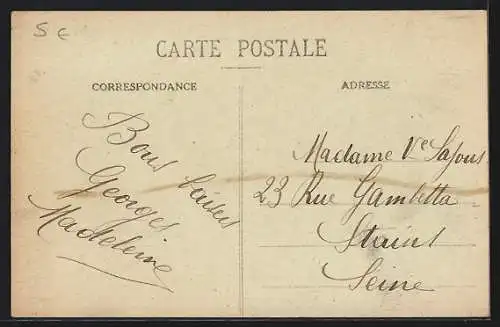 5 €
CARTE POSTALE
CORRESPONDANCE
Bons baisers
Georges
Madeleine
ADRESSE
Madame Ve Lajous
23 Rue Gambetta
Stains
Seine